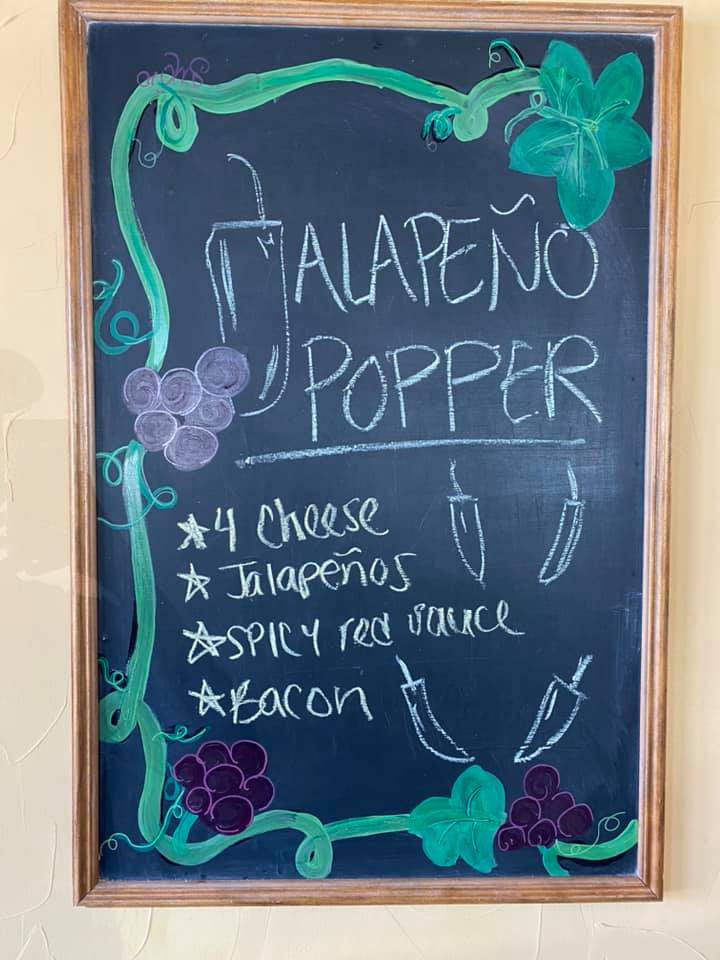 JALAPEÑO
POPPER
☆4 Cheese
☆Jalapeños
☆SPICY red sauce
☆Bacon